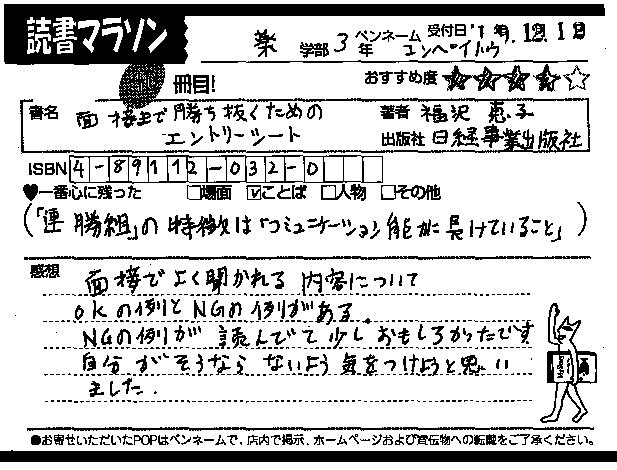 読書マラソン
薬 学部 3 年 ペンネーム コンペイトウ 受付日 '19.12.12
冊目! おすすめ度 ★★★★☆
書名 面接まで勝ち抜くための エントリーシート
著者 福沢 恵子
出版社 日経事業出版社
ISBN 4-89112-032-0
♥一番心に残った □場面 ☑ことば □人物 □その他
(「連勝組」の特徴は「コミュニケーション能力に長けていること」)
感想 面接でよく聞かれる内容について
OKの例とNGの例がある。
NGの例が読んでて少しおもしろかったです
自分がそうならないよう気をつけようと思い
ました.
●お寄せいただいたPOPはペンネームで、店内で掲示、ホームページおよび宣伝物への転載をご了承ください。